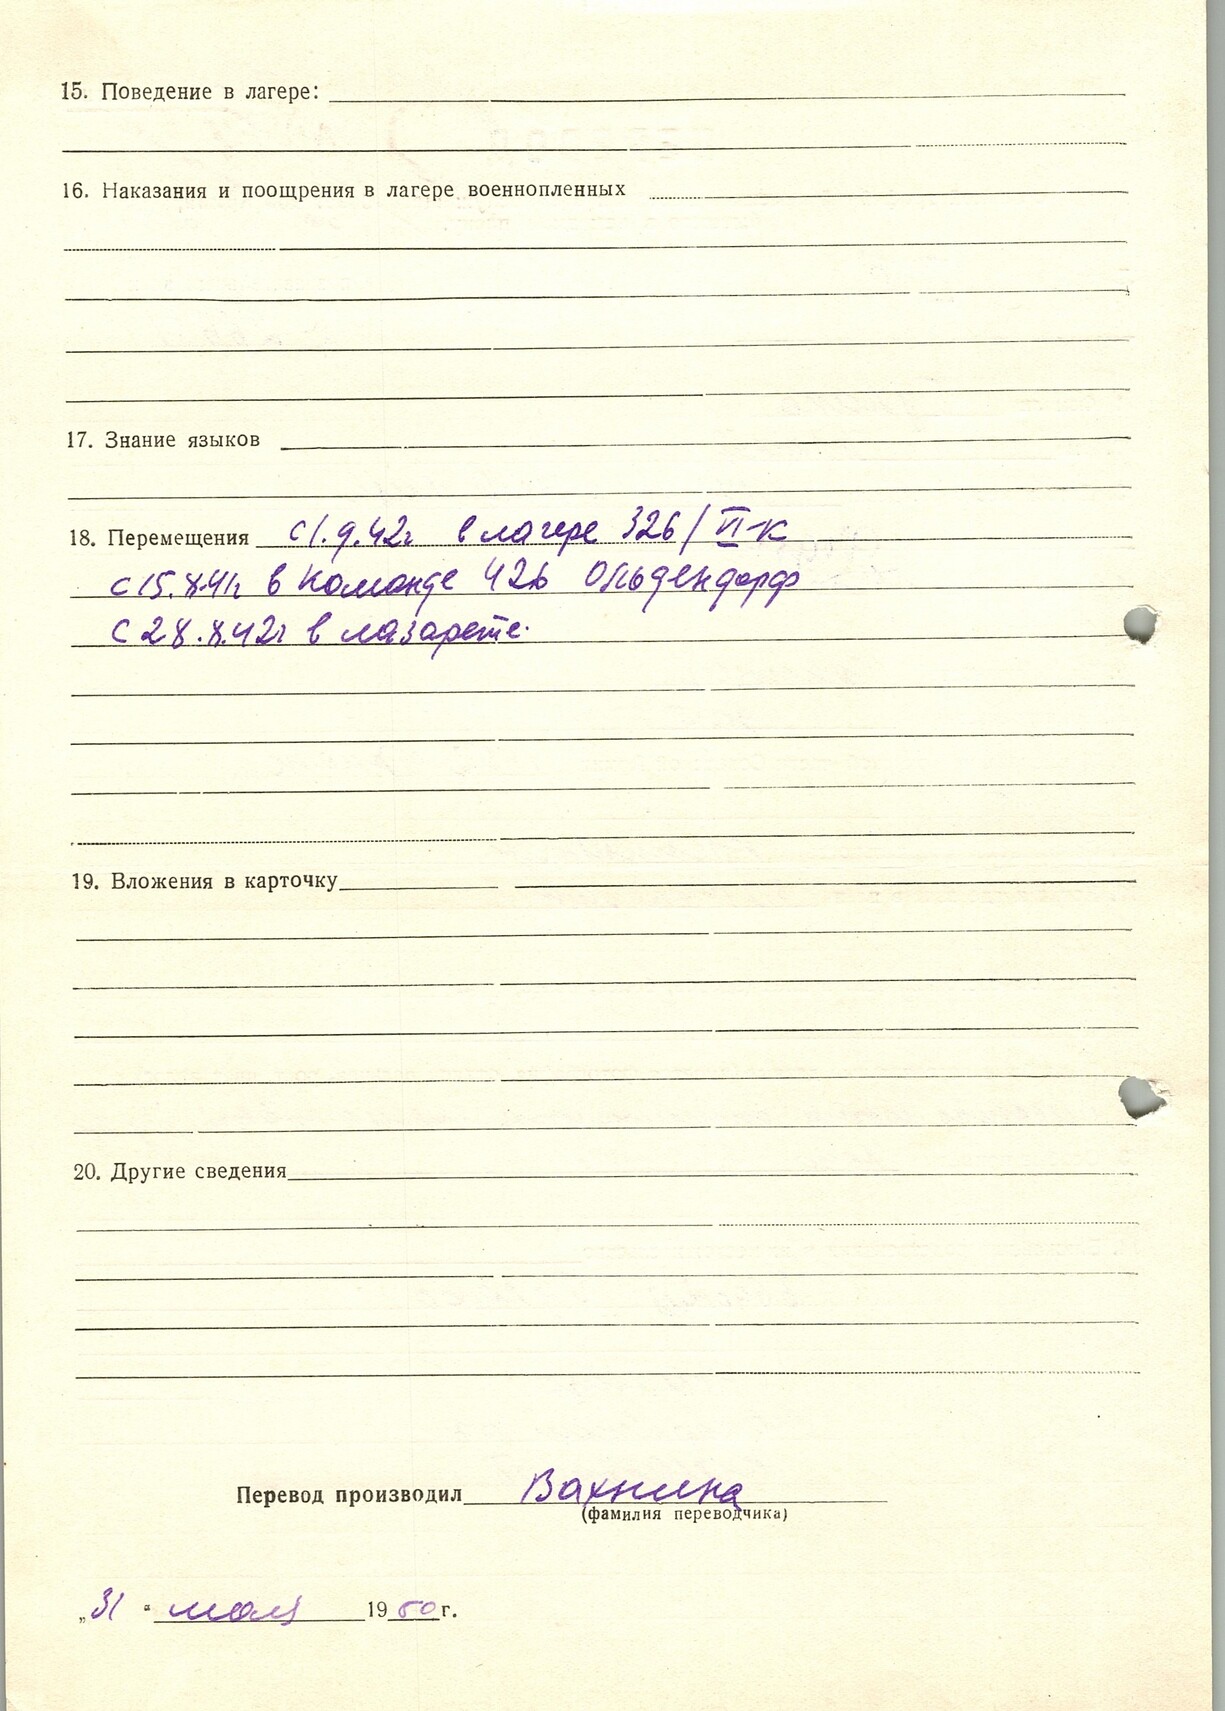 15. Поведение в лагере:
16. Наказания и поощрения в лагере военнопленных
17. Знание языков
18. Перемещения с 1.9.42г в лагере 326/VI-К
с 15.X.41г в команде 426 Ольдендорф
с 28.X.42г в лазарете.
19. Вложения в карточку
20. Другие сведения
Перевод производил Вахнина
(фамилия переводчика)
„31“ мая 1950г.